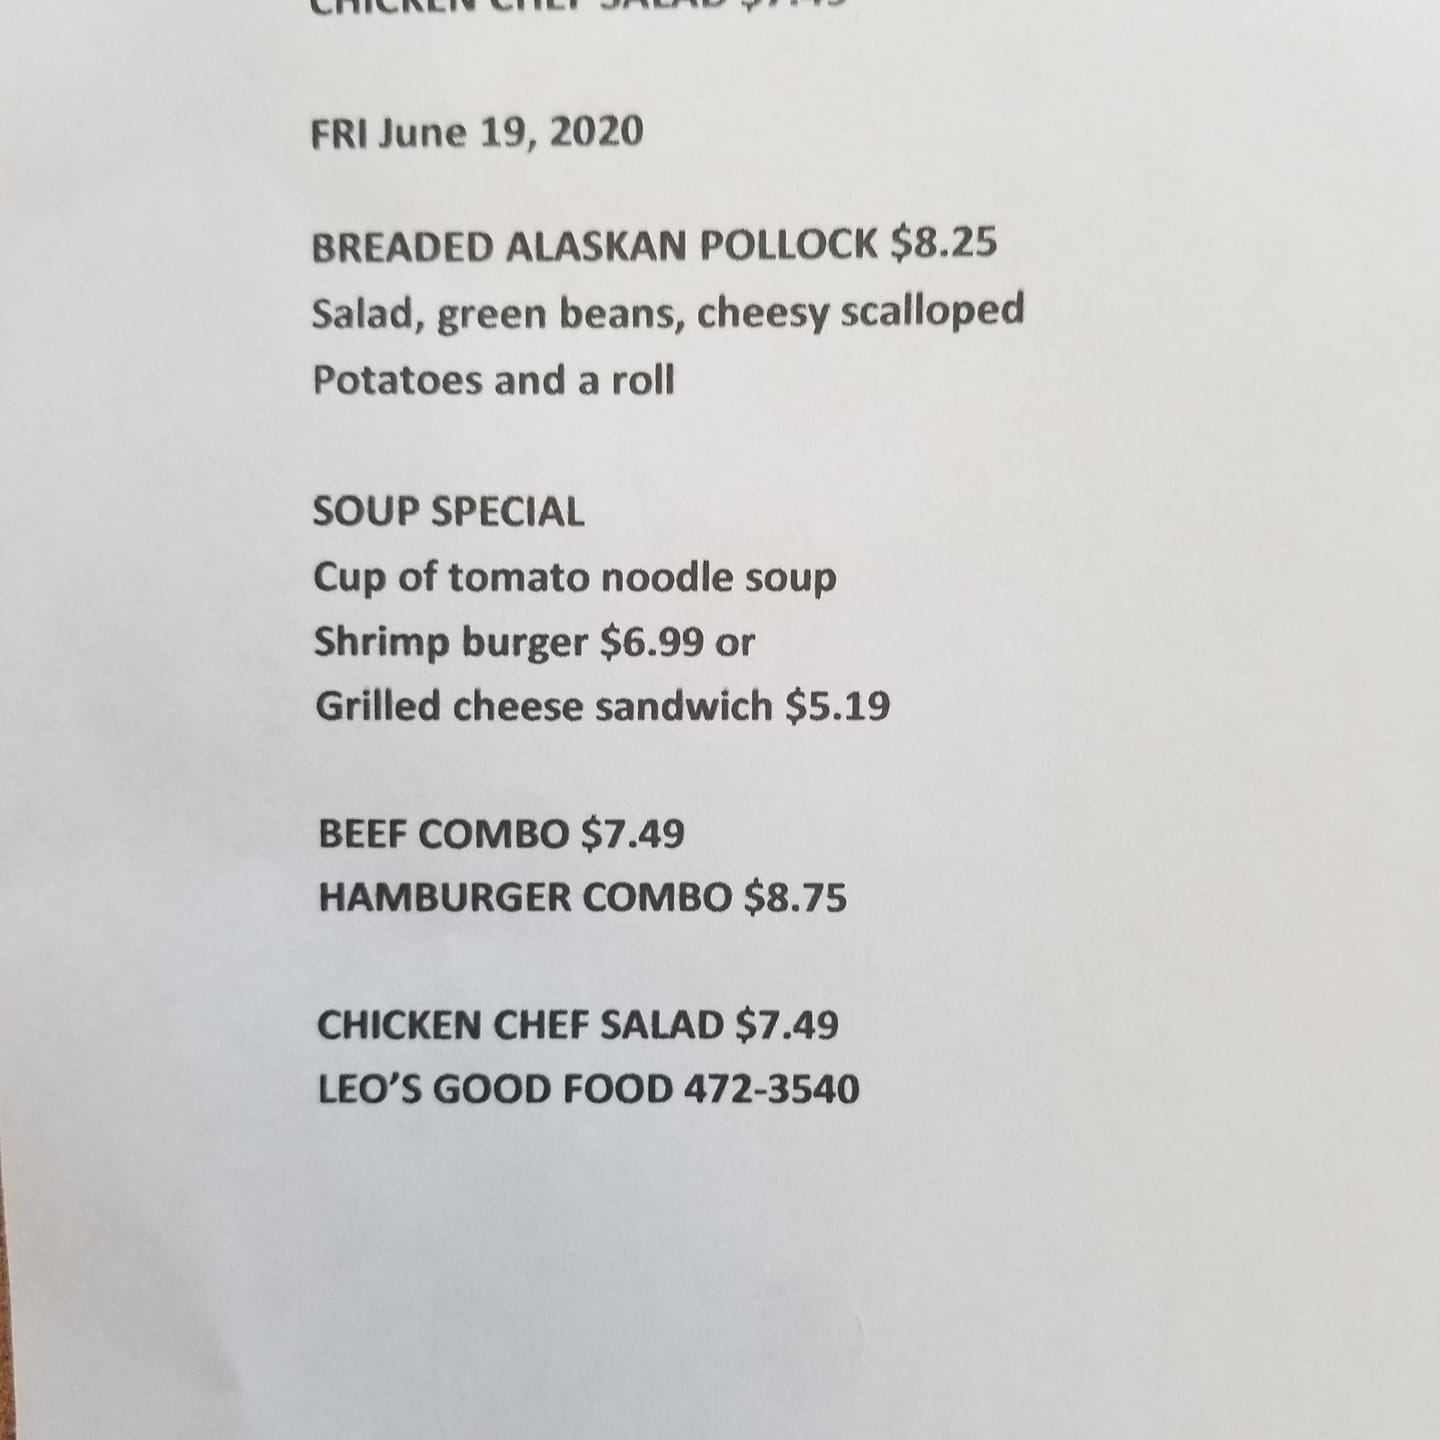 CHICKEN CHEF SALAD $7.49
FRI June 19, 2020
BREADED ALASKAN POLLOCK $8.25
Salad, green beans, cheesy scalloped
Potatoes and a roll
SOUP SPECIAL
Cup of tomato noodle soup
Shrimp burger $6.99 or
Grilled cheese sandwich $5.19
BEEF COMBO $7.49
HAMBURGER COMBO $8.75
CHICKEN CHEF SALAD $7.49
LEO’S GOOD FOOD 472-3540